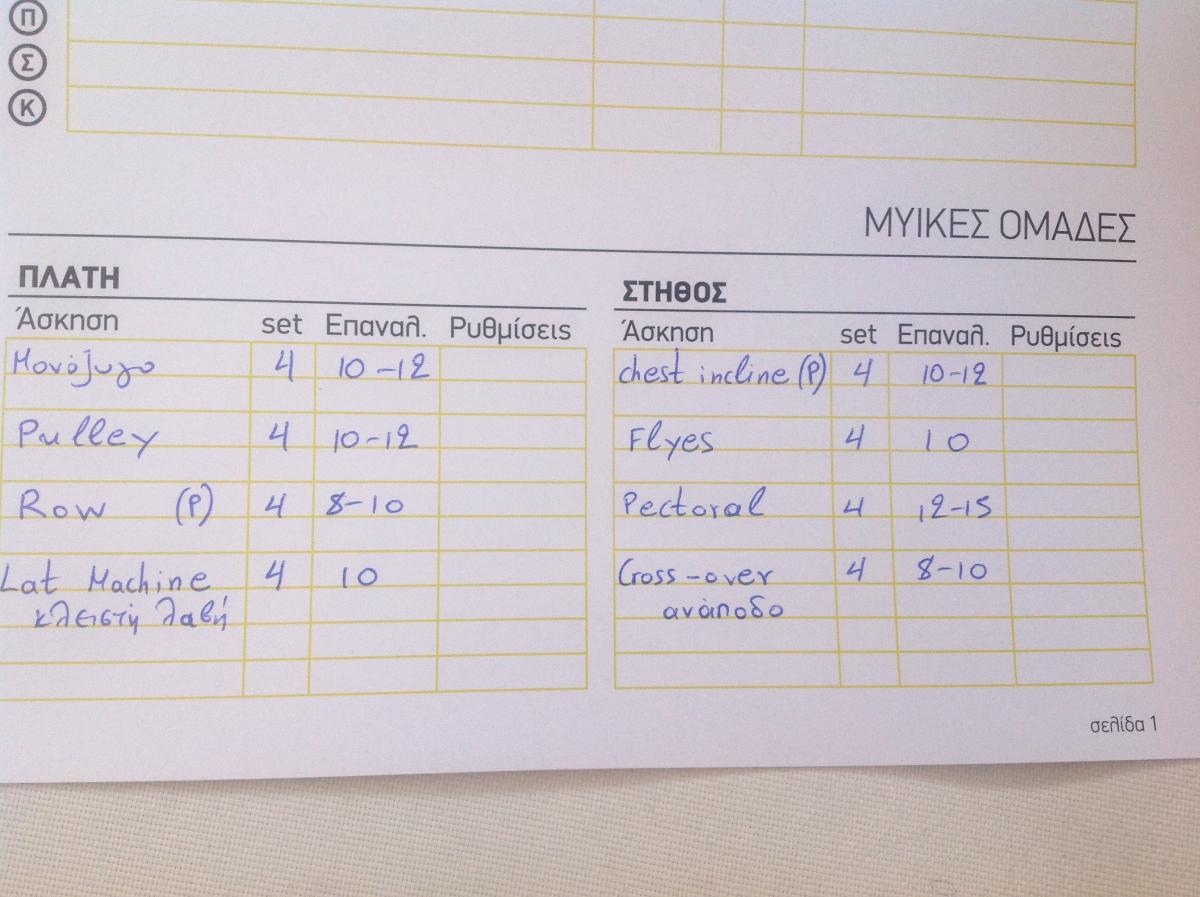 Π
Σ
Κ
ΜΥΙΚΕΣ ΟΜΑΔΕΣ
ΠΛΑΤΗ
Άσκηση set Επαναλ. Ρυθμίσεις
Μονόζυγο 4 10-12
Pulley 4 10-12
Row (P) 4 8-10
Lat Machine 4 10
κλειστή λαβή
ΣΤΗΘΟΣ
Άσκηση set Επαναλ. Ρυθμίσεις
chest incline (P) 4 10-12
Flyes 4 10
Pectoral 4 12-15
Cross-over 4 8-10
ανάποδο
σελίδα 1